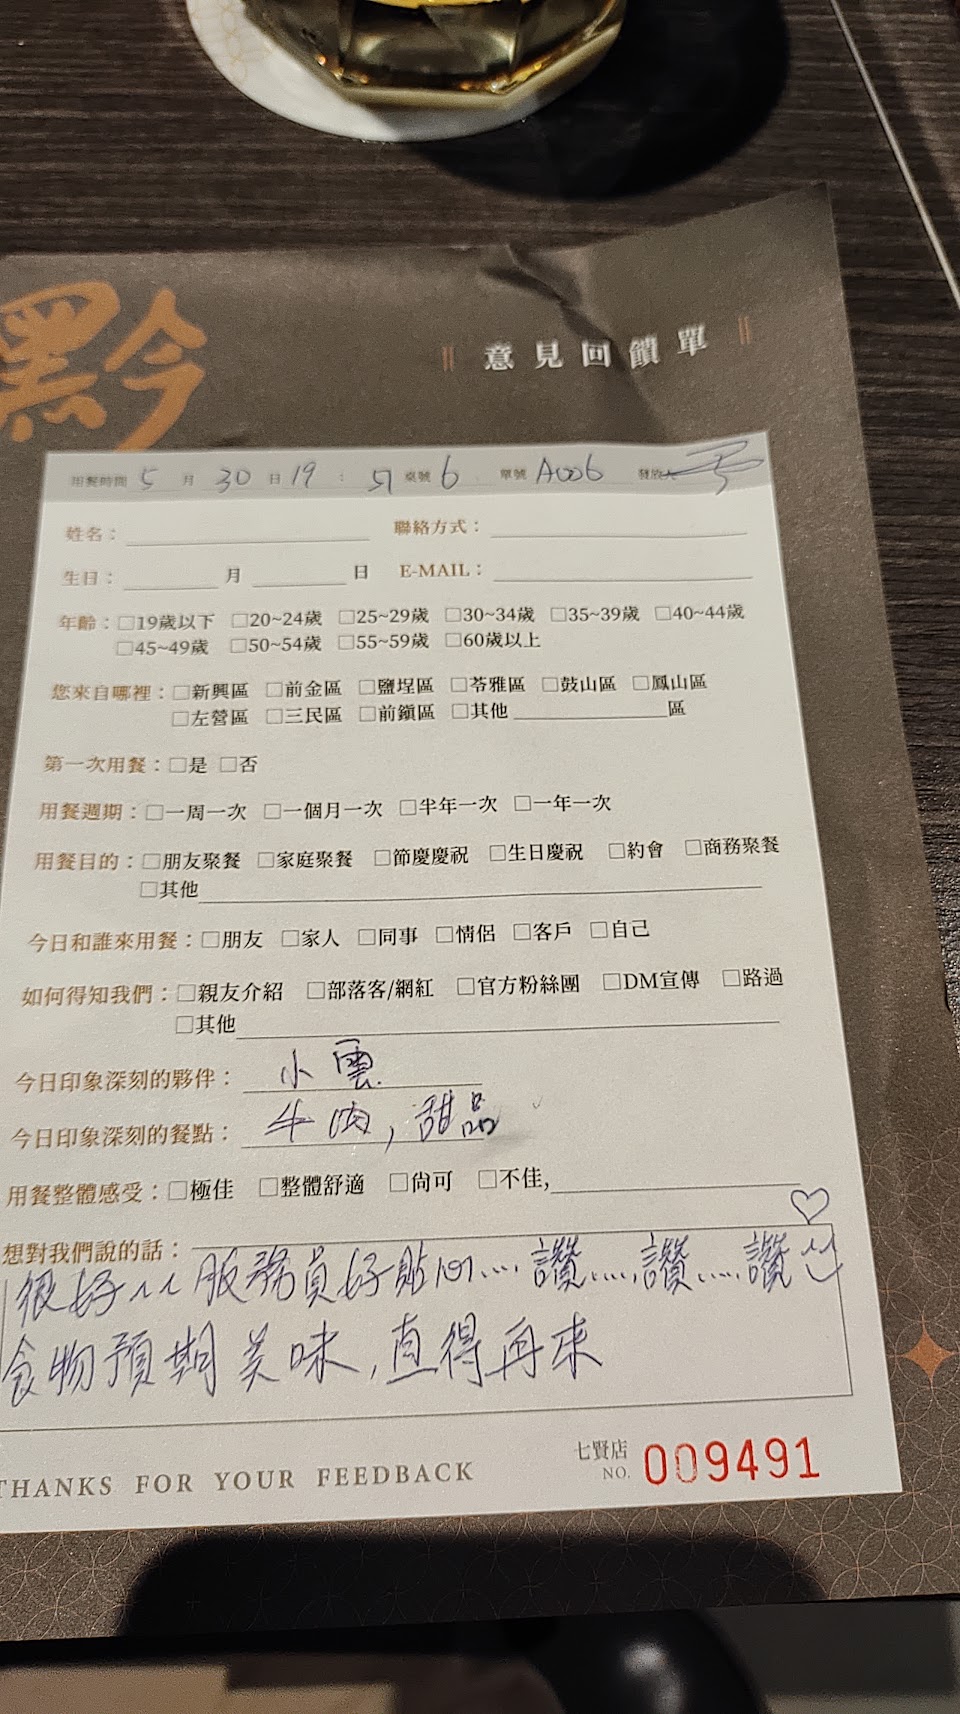 黔
意見回饋單
用餐時間 5 月 30 日 19 : 51 桌號 6 單號 A006 發放人
姓名: 聯絡方式:
生日: 月 日 E-MAIL:
年齡: □19歲以下 □20~24歲 □25~29歲 □30~34歲 □35~39歲 □40~44歲
□45~49歲 □50~54歲 □55~59歲 □60歲以上
您來自哪裡: □新興區 □前金區 □鹽埕區 □苓雅區 □鼓山區 □鳳山區
□左營區 □三民區 □前鎮區 □其他 區
第一次用餐: □是 □否
用餐週期: □一周一次 □一個月一次 □半年一次 □一年一次
用餐目的: □朋友聚餐 □家庭聚餐 □節慶慶祝 □生日慶祝 □約會 □商務聚餐
□其他
今日和誰來用餐: □朋友 □家人 □同事 □情侶 □客戶 □自己
如何得知我們: □親友介紹 □部落客/網紅 □官方粉絲團 □DM宣傳 □路過
□其他
今日印象深刻的夥伴: 小雲
今日印象深刻的餐點: 牛肉,甜品
用餐整體感受: □極佳 □整體舒適 □尚可 □不佳,
想對我們說的話: ♡
很好~~服務員好貼心....讚....讚....讚
食物預期美味,直得再來
THANKS FOR YOUR FEEDBACK 七賢店 NO. 009491